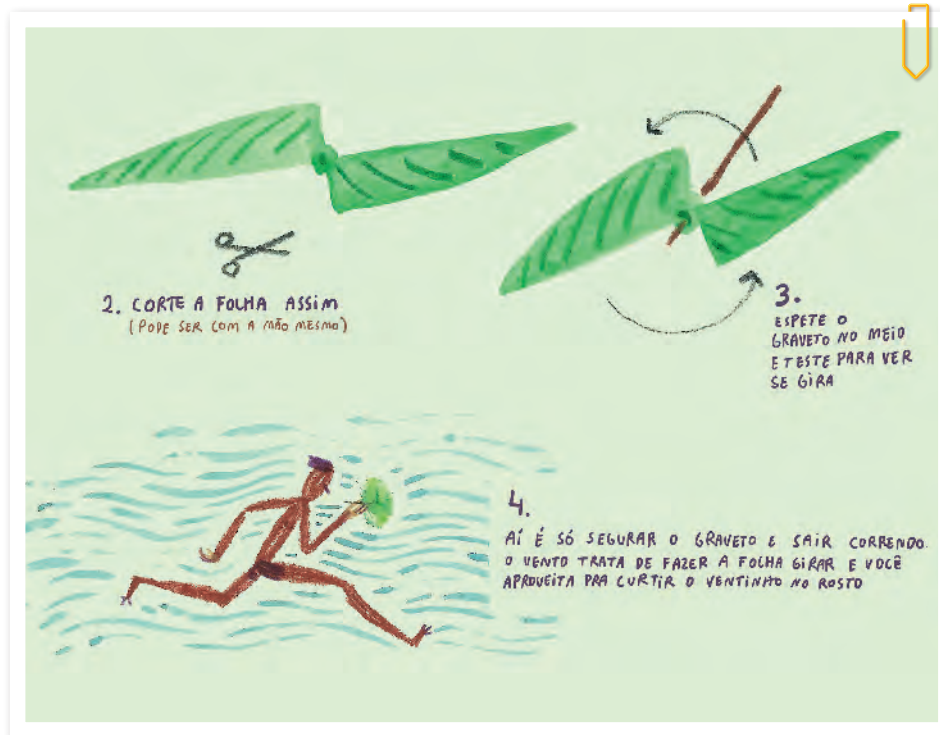 2. CORTE A FOLHA ASSIM
(PODE SER COM A MÃO MESMO)
3.
ESPETE O
GRAVETO NO MEIO
E TESTE PARA VER
SE GIRA
4.
AÍ É SÓ SEGURAR O GRAVETO E SAIR CORRENDO.
O VENTO TRATA DE FAZER A FOLHA GIRAR E VOCÊ
APROVEITA PRA CURTIR O VENTINHO NO ROSTO